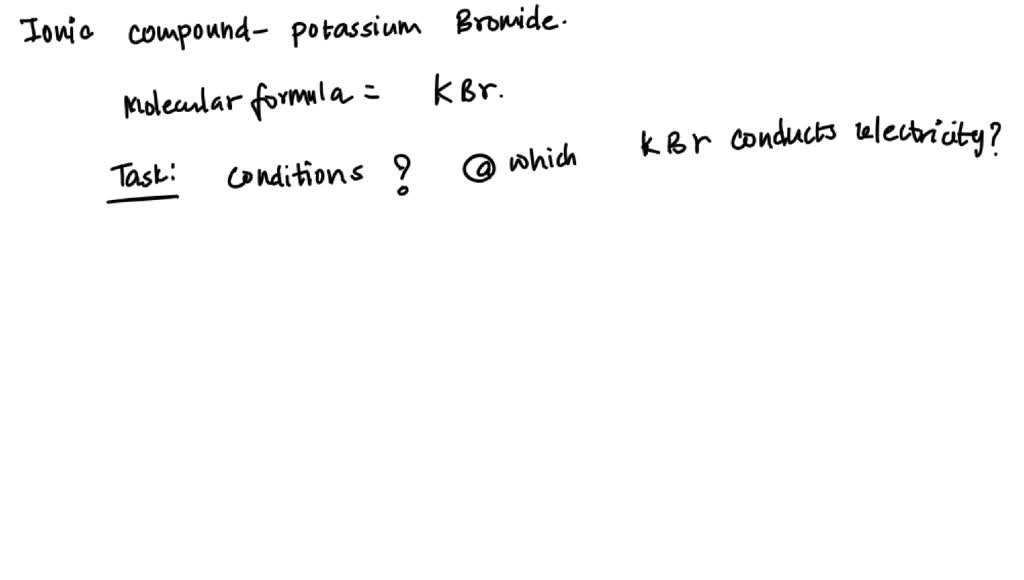 Ionic compound- potassium Bromide.
Molecular formula = KBr.
Task: conditions ? @ which KBr conducts electricity?